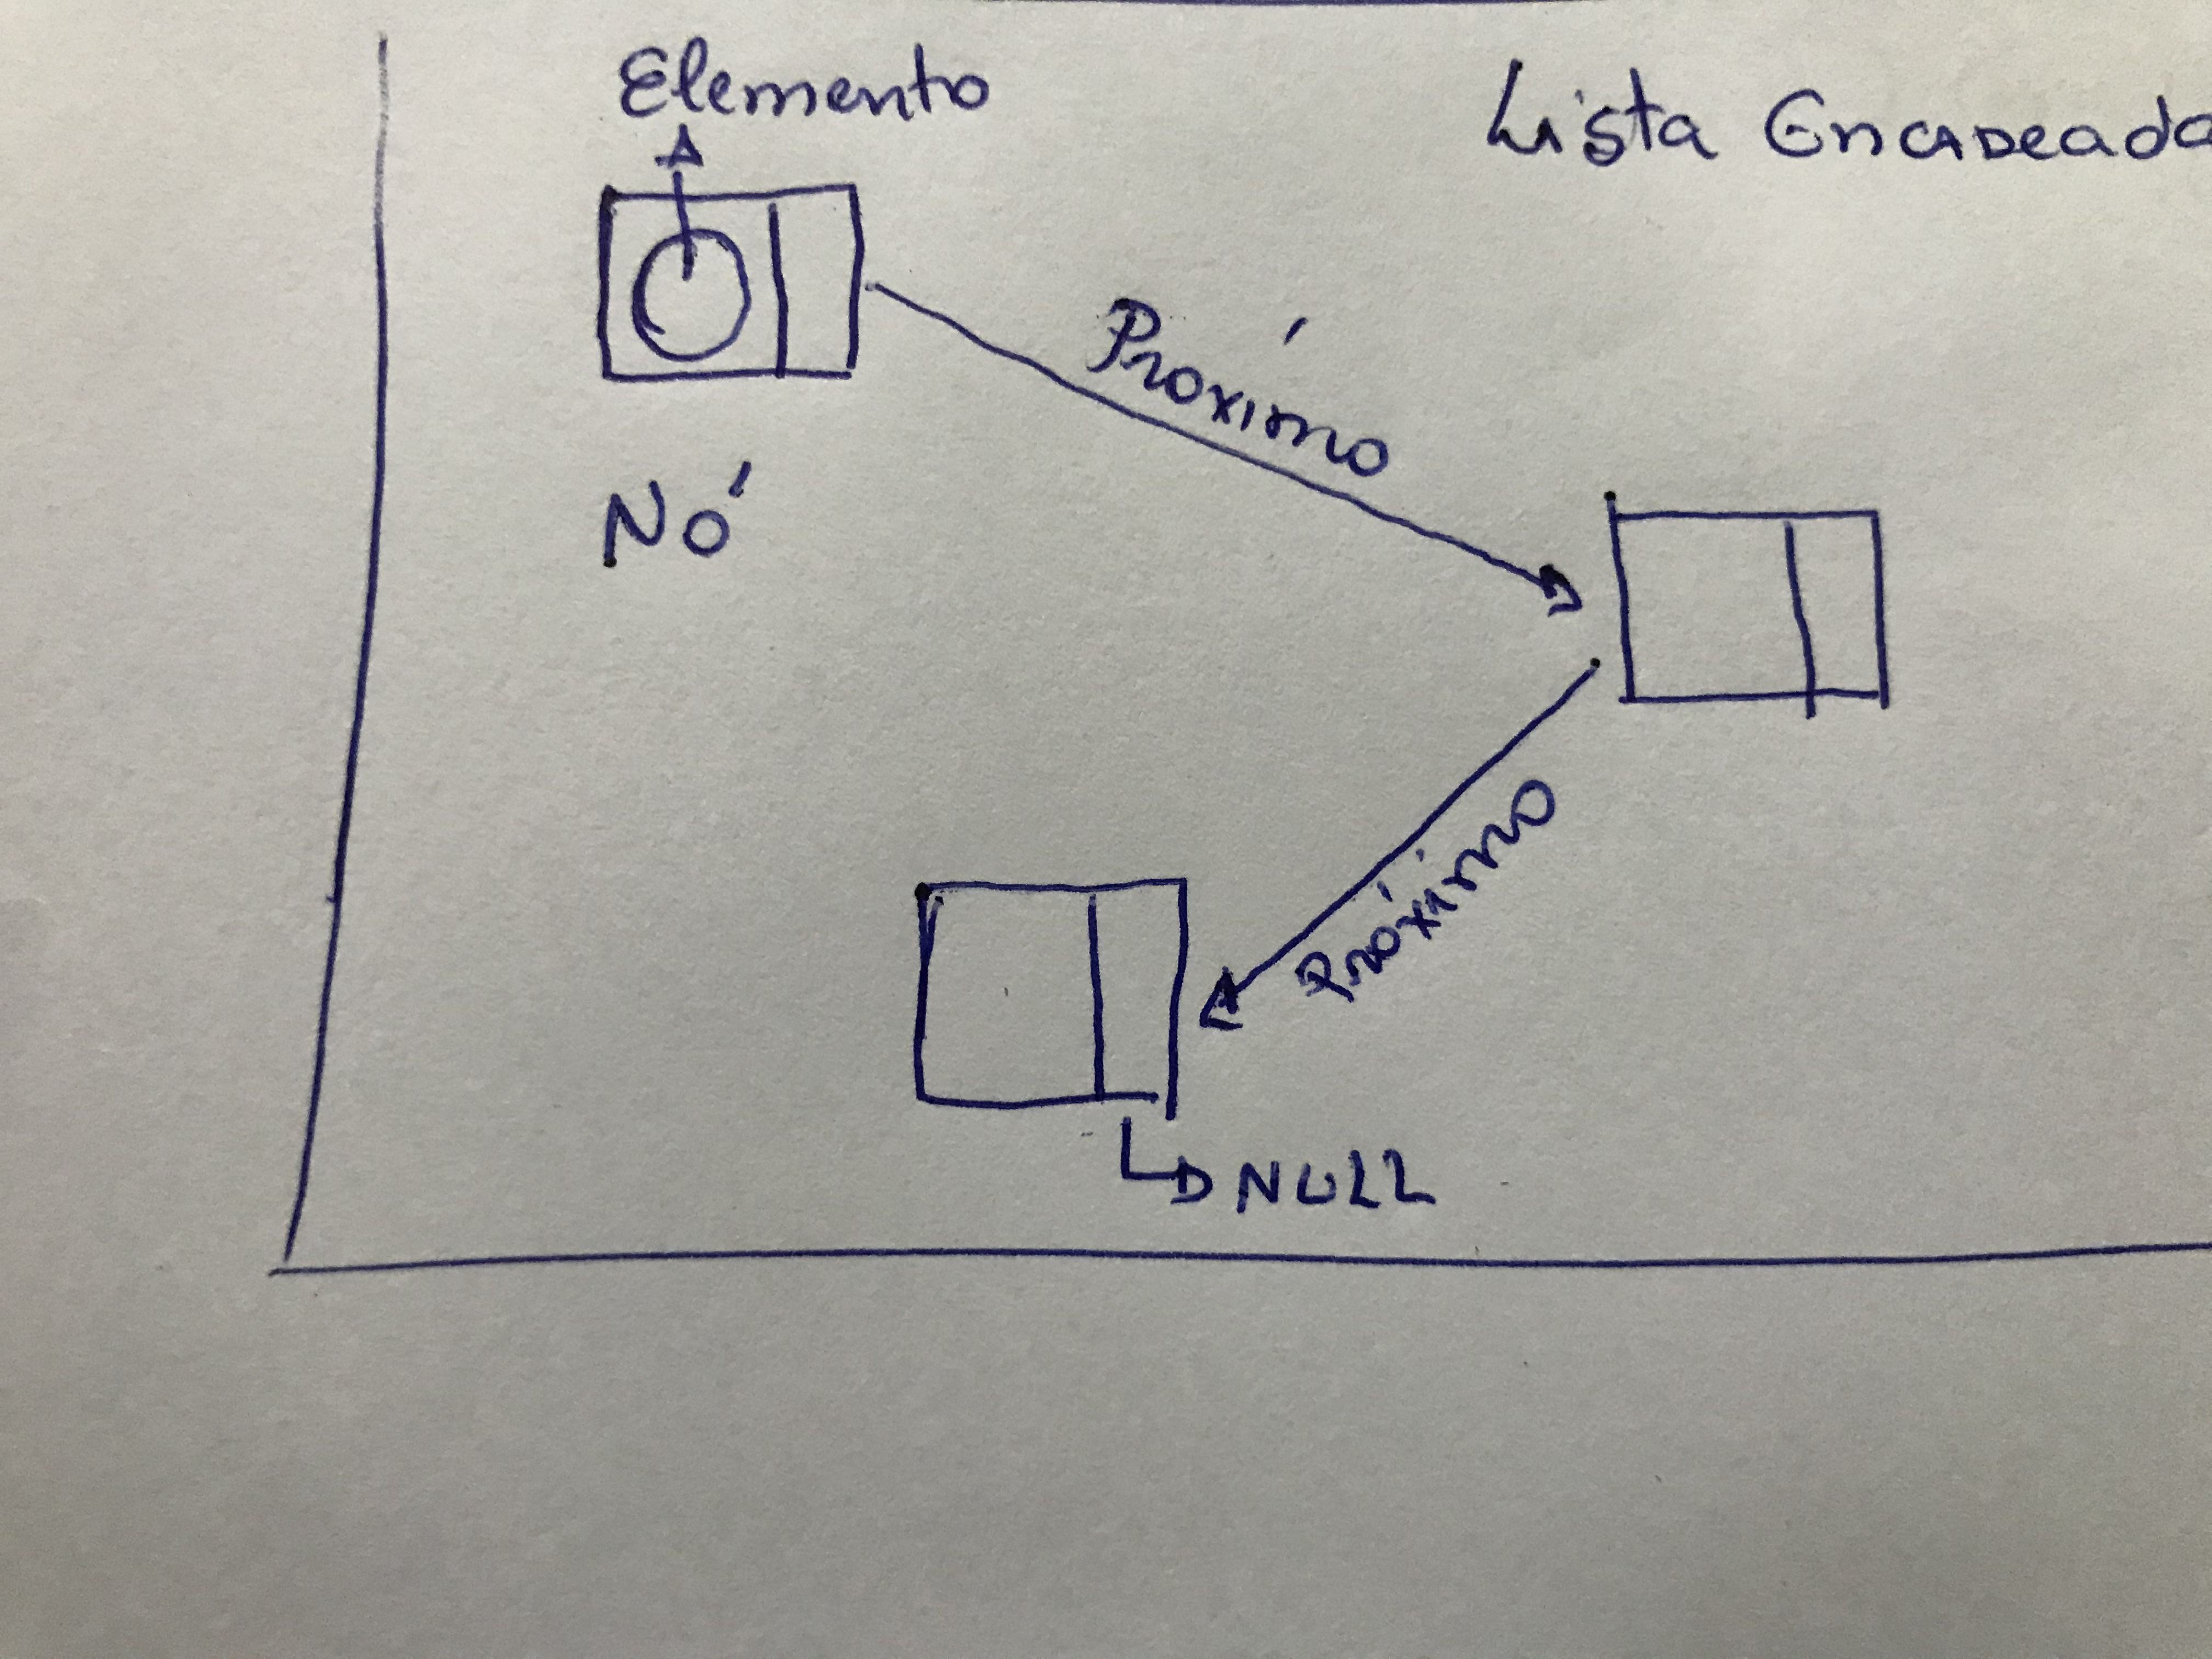 Elemento
Lista Encadeada
Próximo
Nó
Próximo
NULL